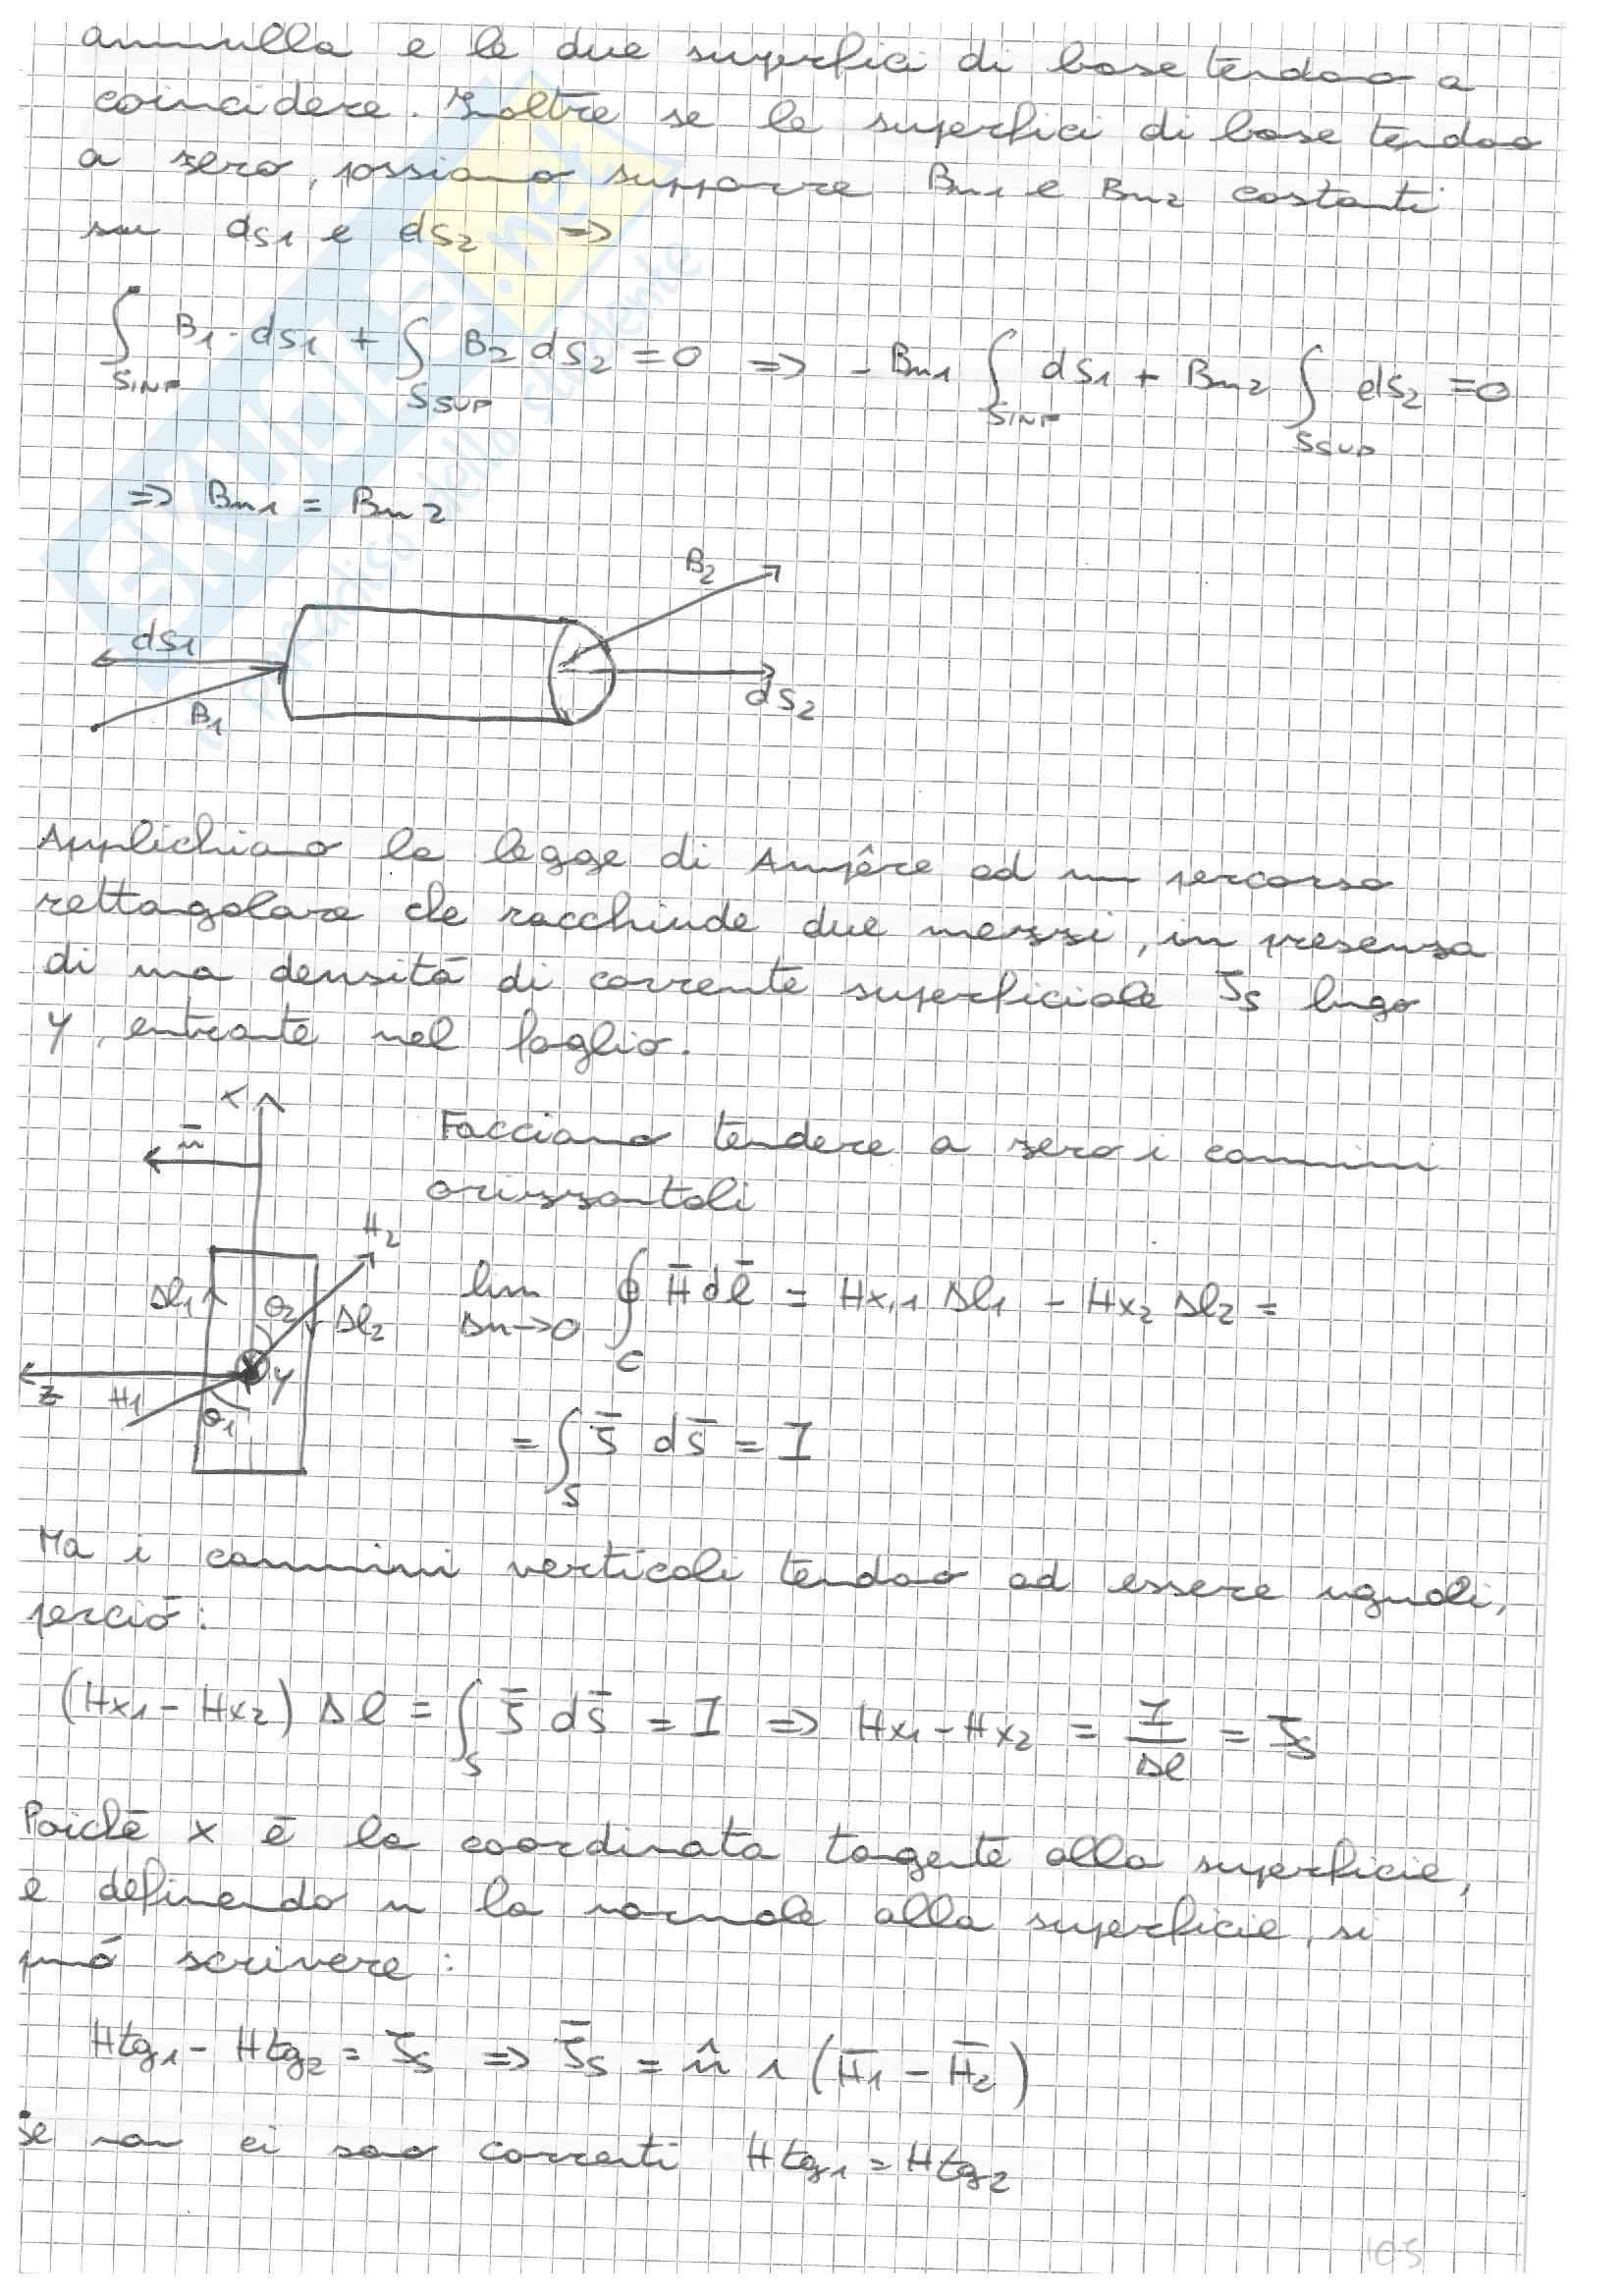 annulla e le due superfici di base tendono a
coincidere. Inoltre se le superfici di base tendono
a zero, possiamo supporre Bn1 e Bn2 costanti
su ds1 e ds2 =>
∫SINF B1·ds1 + ∫SSUP B2 ds2 = 0 => -Bn1 ∫SINF ds1 + Bn2 ∫SSUP ds2 = 0
=> Bn1 = Bn2
B2
ds1
B1
ds2
Applichiamo la legge di Ampêre ad un percorso
rettangolare che racchiude due mezzi, in presenza
di una densità di corrente superficiale Js lungo
y, entrante nel foglio.
x
n̄
Facciamo tendere a zero i cammini
orizzontali
H2
Δl1 θ2 Δl2
lim Δn->0 ∮C H̄ dl̄ = Hx,1 Δl1 - Hx2 Δl2 =
z H1 θ1 y
= ∫S J̄ ds̄ = I
Ma i cammini verticali tendono ad essere uguali,
perciò:
(Hx1 - Hx2) Δl = ∫S J̄ ds̄ = I => Hx1 - Hx2 = I/Δl = Js
Poichè x è la coordinata tangente alla superficie,
e definendo n la normale alla superficie, si
può scrivere:
Htg1 - Htg2 = Js => J̄s = n̂ ∧ (H̄1 - H̄2)
Se non ci sono correnti Htg1 = Htg2
105
SKUOLA.net
il paradiso dello studente